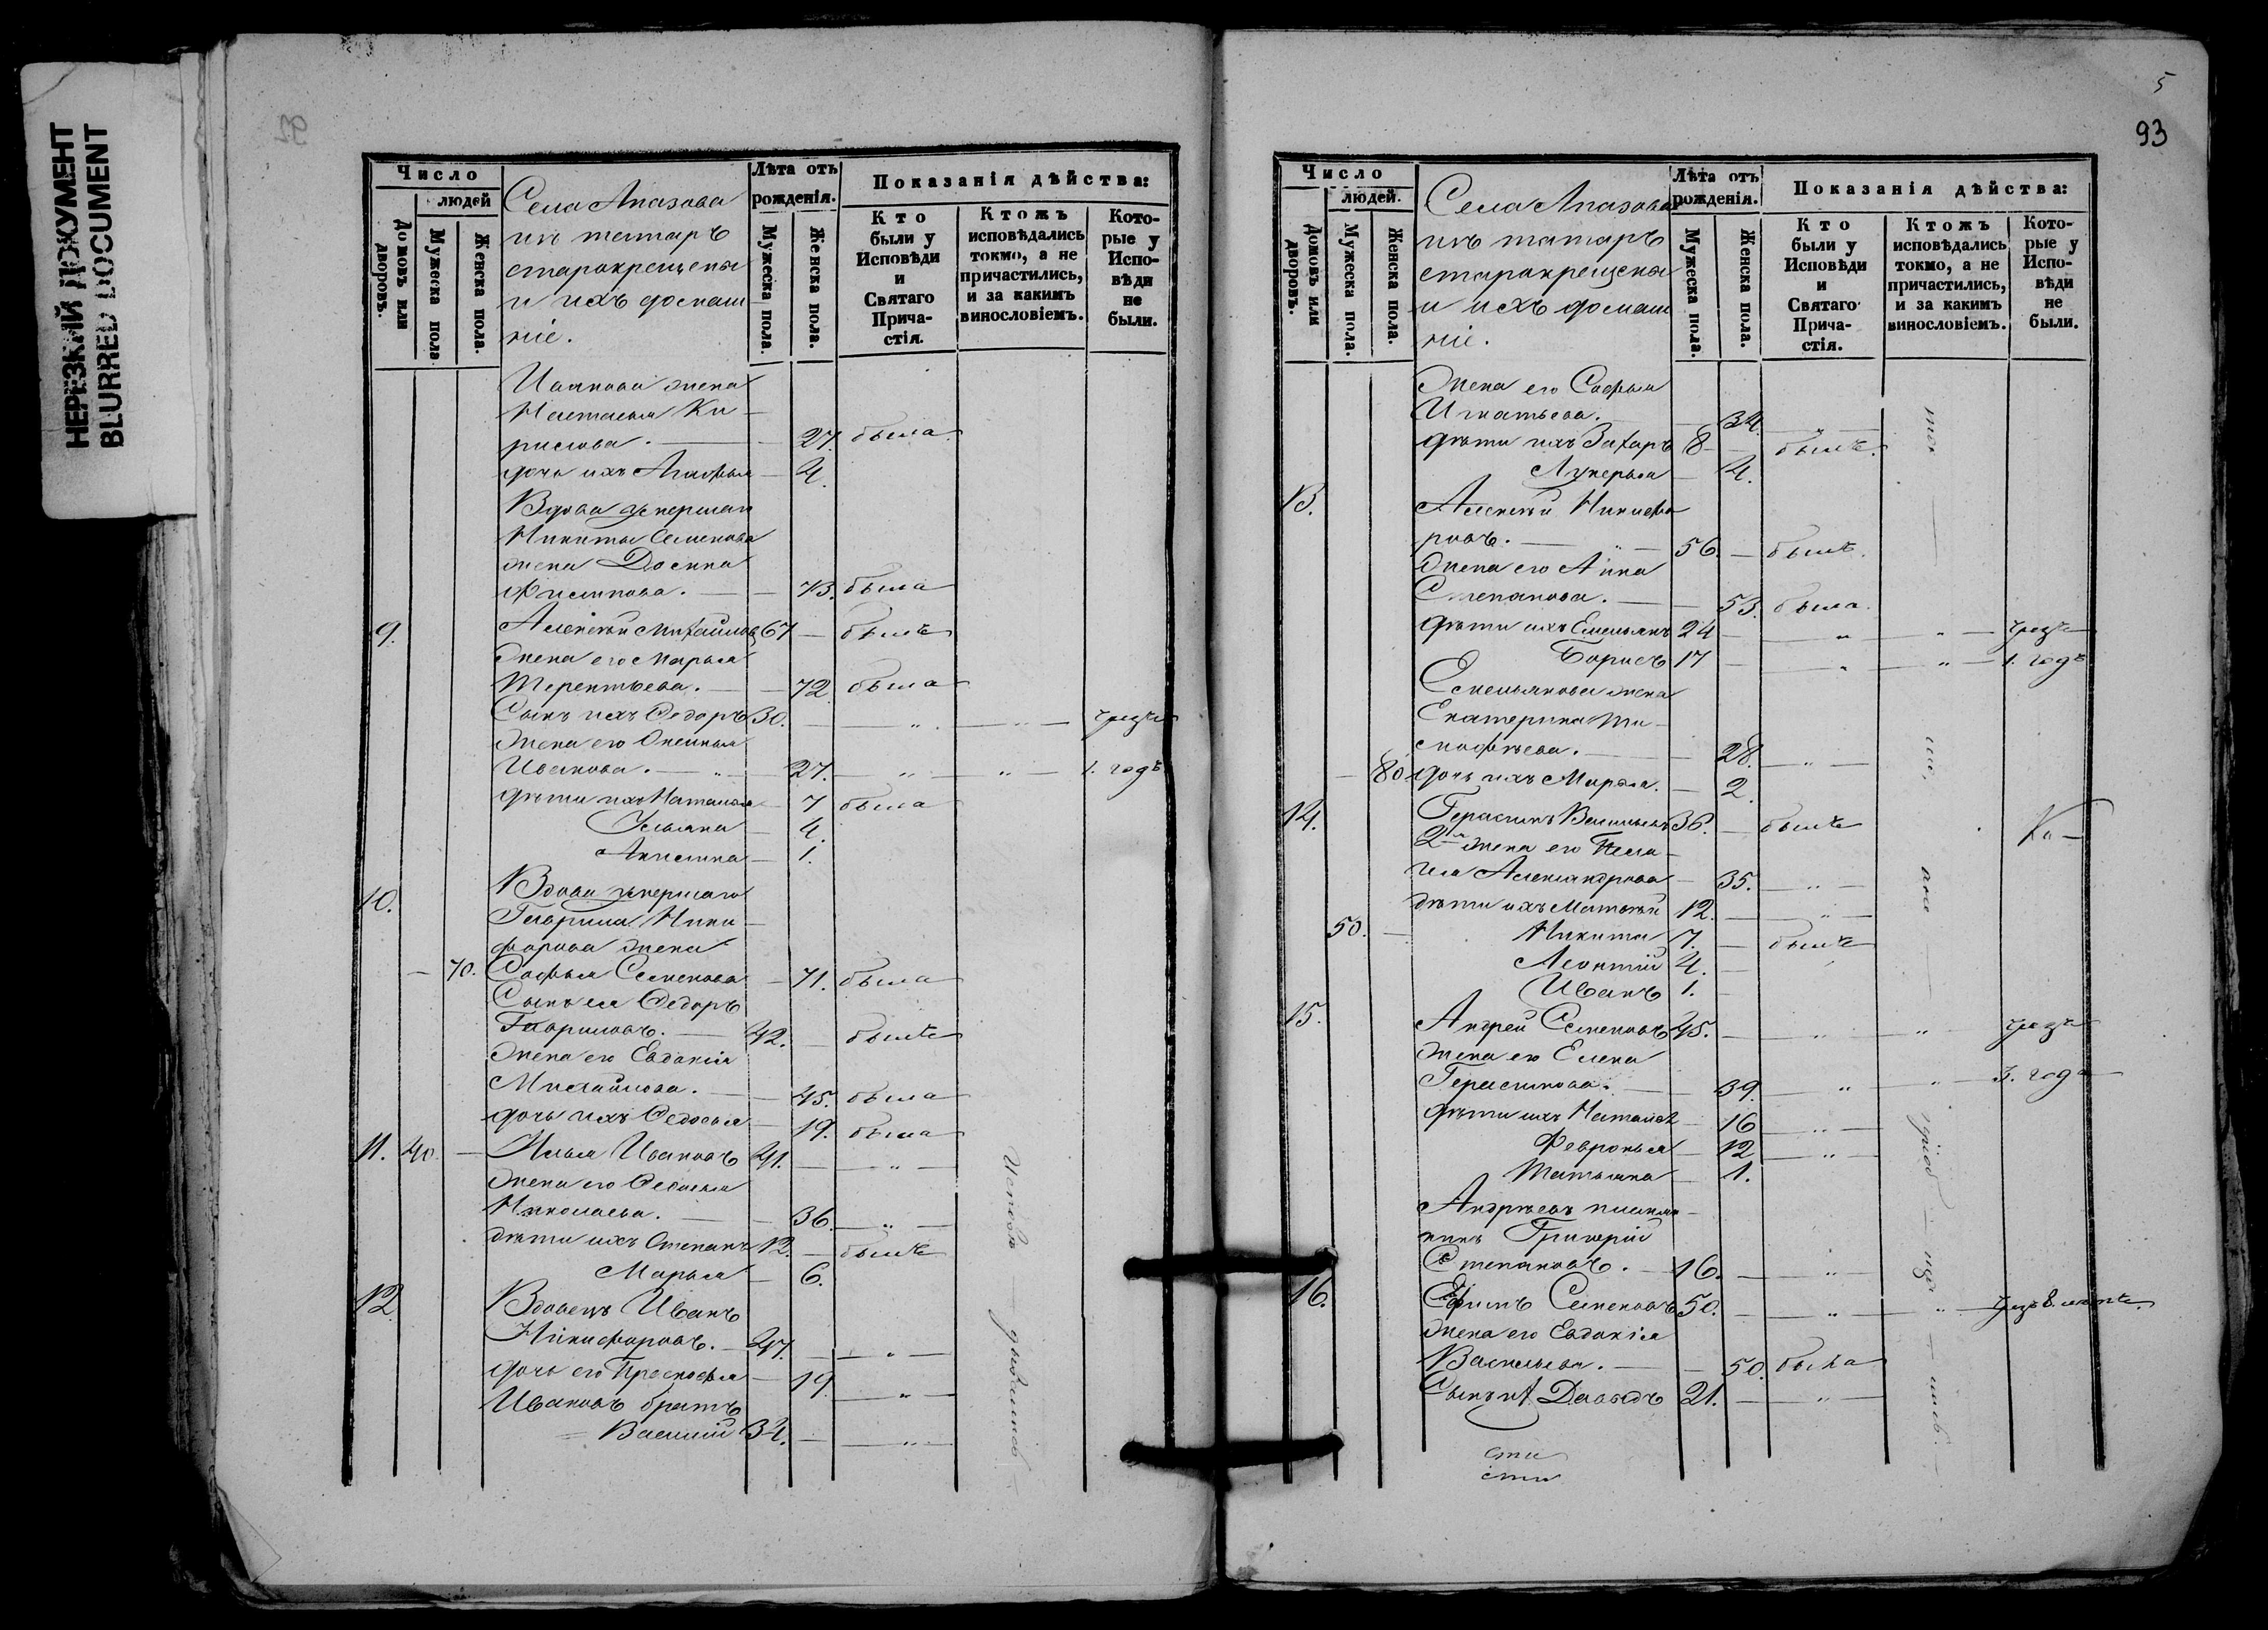 НЕРЕЗКИЙ ДОКУМЕНТ
BLURRED DOCUMENT
Число
людей
Домовъ или дворовъ.
Мужеска пола
Женска пола.
Села Апазова
изъ татаръ
старокрещены
и ихъ домаш
ніе.
Лѣта отъ рожденія.
Мужеска пола.
Женска пола.
Показанія дѣйства:
Кто были у Исповѣди и Святаго Прича-стія.
Ктожъ исповѣдались токмо, а не причастились, и за какимъ винословіемъ.
Кото-рые у Испо-вѣди не были.
Иванова жена
Настасья Ки-
рилова. 27. была
дочь ихъ Агафья 4.
Вдова умершаго
Никиты Семенова
жена Домна
Филипова. 73. была
9. Алексѣй Михайловъ 67 былъ
Жена его Марья
Терентьева. 72 была
Сынъ ихъ Ѳедоръ 30. " "
Жена его Ксенья
Иванова. 27. " " 1. годъ
дѣти ихъ Наталья 7 была
Ульяна 4.
Акилина 1.
10. Вдова умершаго
Гаврила Ники-
форова жена
70. Софья Семенова 71. была
Сынъ ея Ѳедоръ
Гавриловъ. 42. былъ
Жена его Евдокія
Михайлова. 45. была
дочь ихъ Ѳедосья 19. была
11. 40. Илья Ивановъ 41. "
Жена его Ѳедосья
Николаева. 36. "
дѣти ихъ Степанъ 12. былъ
Марья 6.
12 Вдовецъ Иванъ
Никифоровъ. 47. "
дочь его Прасковья 19. "
Ивановъ братъ
Василій 34. "
5
93
Число
людей.
Домовъ или дворовъ.
Мужеска пола.
Женска пола.
Села Апазова
изъ татаръ
старокрещены
и ихъ домаш
ніе.
Лѣта отъ рожденія.
Мужеска пола.
Женска пола.
Показанія дѣйства:
Кто были у Исповѣди и Святаго Прича-стія.
Ктожъ исповѣдались токмо, а не причастились, и за какимъ винословіемъ.
Кото-рые у Испо-вѣди не были.
Жена его Софья
Игнатьева. 34. "
дѣти ихъ Захаръ 8 былъ.
Лукерья 4.
13. Алексѣй Никифо
ровъ. " 56. былъ.
Жена его Анна
Степанова. 53. была.
дѣти ихъ Емельянъ 24 " "
Борисъ 17 " " 1. годъ
Емельянова жена
Екатерина Ти-
мофѣева. 28. "
80 дочь ихъ Марья. 2.
14. Герасимъ Васильевъ 36. былъ
2я жена его Пела-
гея Александрова 35. "
дѣти ихъ Матвѣй 12. "
50. Никита 7. былъ
Леонтій 4.
Иванъ 1.
15. Андрей Семеновъ 45. " "
Жена его Елена
Герасимова. 39. " " 3. года
дѣти ихъ Наталья 16 "
Февронья 12 "
Татьяна 1.
Андреевъ племян-
никъ Григорій
Степановъ. 16. "
16. Ефимъ Семеновъ 50. " "
Жена его Евдокія
Васильева. 50. была
Сынъ ихъ Давыдъ 21. "